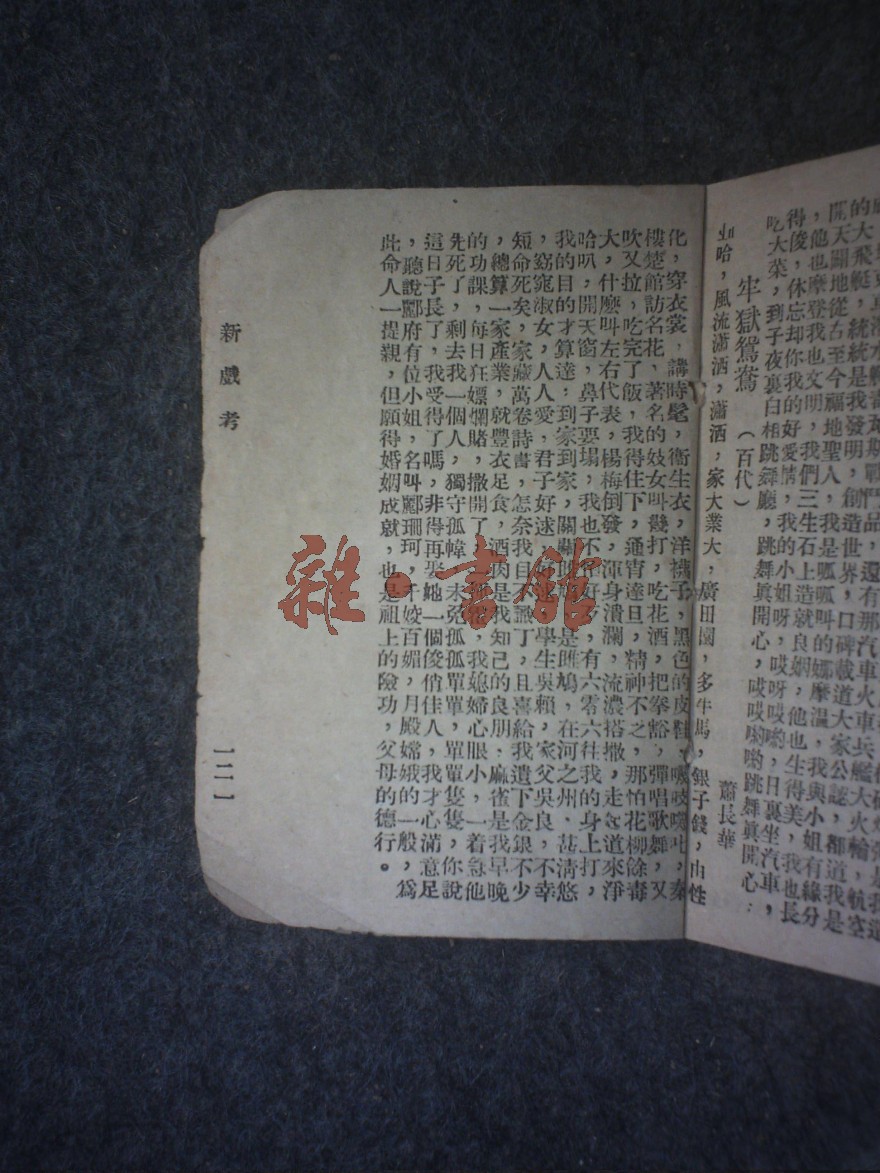 開天闢地從古至今，福地發明，創造世界，口碑載道，大家公認，都道我是
，聖人，我是呱呱叫的娜摩溫，我與小姐有緣分
得俊，他也摩登我也文明，我們三生石上造就良姻，他也生得美，我也長
，休忘却你我的好愛情，我的小姐呀，哎呀哎喲，日裏坐汽車，
吃大菜，到子夜裏白相跳舞廳，跳舞眞開心，哎哎喲喲，跳舞眞開心：
牢獄鴛鴦（百代） 蕭長華
哈，風流瀟洒，瀟洒，家大業大，廣田園，多牛馬，銀子錢，由性
化，穿衣裳，講時髦，衞生衣，洋襪子，黑色的皮鞋，嘎吱嘎吐，秦
樓楚館訪名花，著名的妓女叫幾打，吃花酒，把拳豁，彈唱歌舞，又
吹又拉，吃完了飯，我得住下，通宵達旦，精神不乏，那怕花柳餘毒
大，什麽叫左右代表，楊梅倒發，渾身潰瀾，流濃搭撒，走道來淨
哈叭，開天窗，鼻子要塌，我也不管好歹，有六零六往我的身上打，
我的目的才算達，到家到家，關關是雎鳩，在河之州，甚淸悠
，窈窕淑女，人人愛，君子好逑好逑，學生吳賴，家父吳良，不幸
短命死矣，家藏萬卷詩書，怎奈我目不識丁，且喜給我遺下金銀不少
，總算一家產業，就豐衣足食，酒肉是我知己的良朋，麻雀是我早晚
的功課，每日狂嫖爛賭，撒開了我媳婦心眼小，一着急他
先死了，剩去我一個人，獨守孤幃，未免孤孤單單，單單隻隻，你說
這日子長了，我受得了嗎，非得再娶她一個俊俏佳人，我才心滿意足
，聽說酈府有位小姐，名叫酈珊珂，千姣百媚，月殿嫦娥的一般，爲
此命人一提親，但願得婚姻成就，也是祖上的險功，父母的德行。
新戲考
一二一
雜·書館